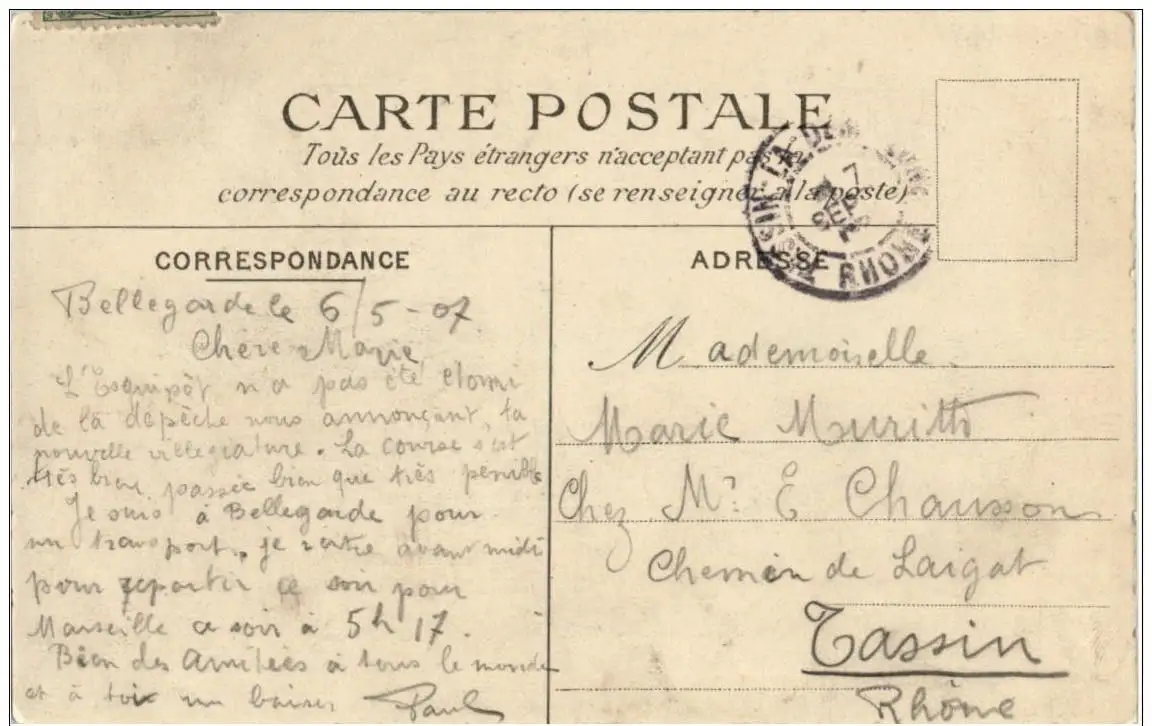 CARTE POSTALE
Tous les Pays étrangers n'acceptant pas la
correspondance au recto (se renseigner à la poste)
CORRESPONDANCE
Bellegarde le 6/5-07
Chère Marie
n'a pas été
de la dépêche nous annonçant, ta
nouvelle villegiature. La course s'est
très bien passée bien que très pénible
Je suis à Bellegarde pour
un transport, je rentre avant midi
pour repartir ce soir pour
Marseille ce soir à 5h 17.
Bien des Amitiées à tous le monde
et à toi un baiser Paul
ADRESSE
TASSIN-LA-DEMI-LUNE
7
RHONE
Mademoiselle
Marie
Chez Mr E Chausson
Chemin de
Tassin
Rhône